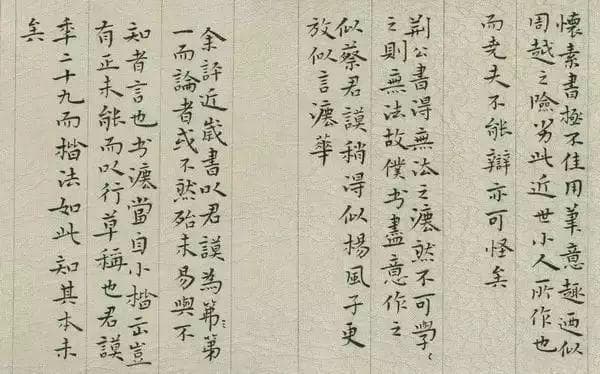 懷素書極不佳用筆意趣迺似
周越之險劣此近世小人所作也
而堯夫不能辯亦可怪矣
荆公書得無法之灋然不可學〻
之則無法故僕书盡意作之
似蔡君謨稍得似楊風子更
放似言灋華
余評近歲書以君謨為第第
一而論者或不然殆未易與不
知者言也书灋當自小楷出豈
有正未能而以行草稱也君謨
秊二十九而楷法如此知其本末
矣